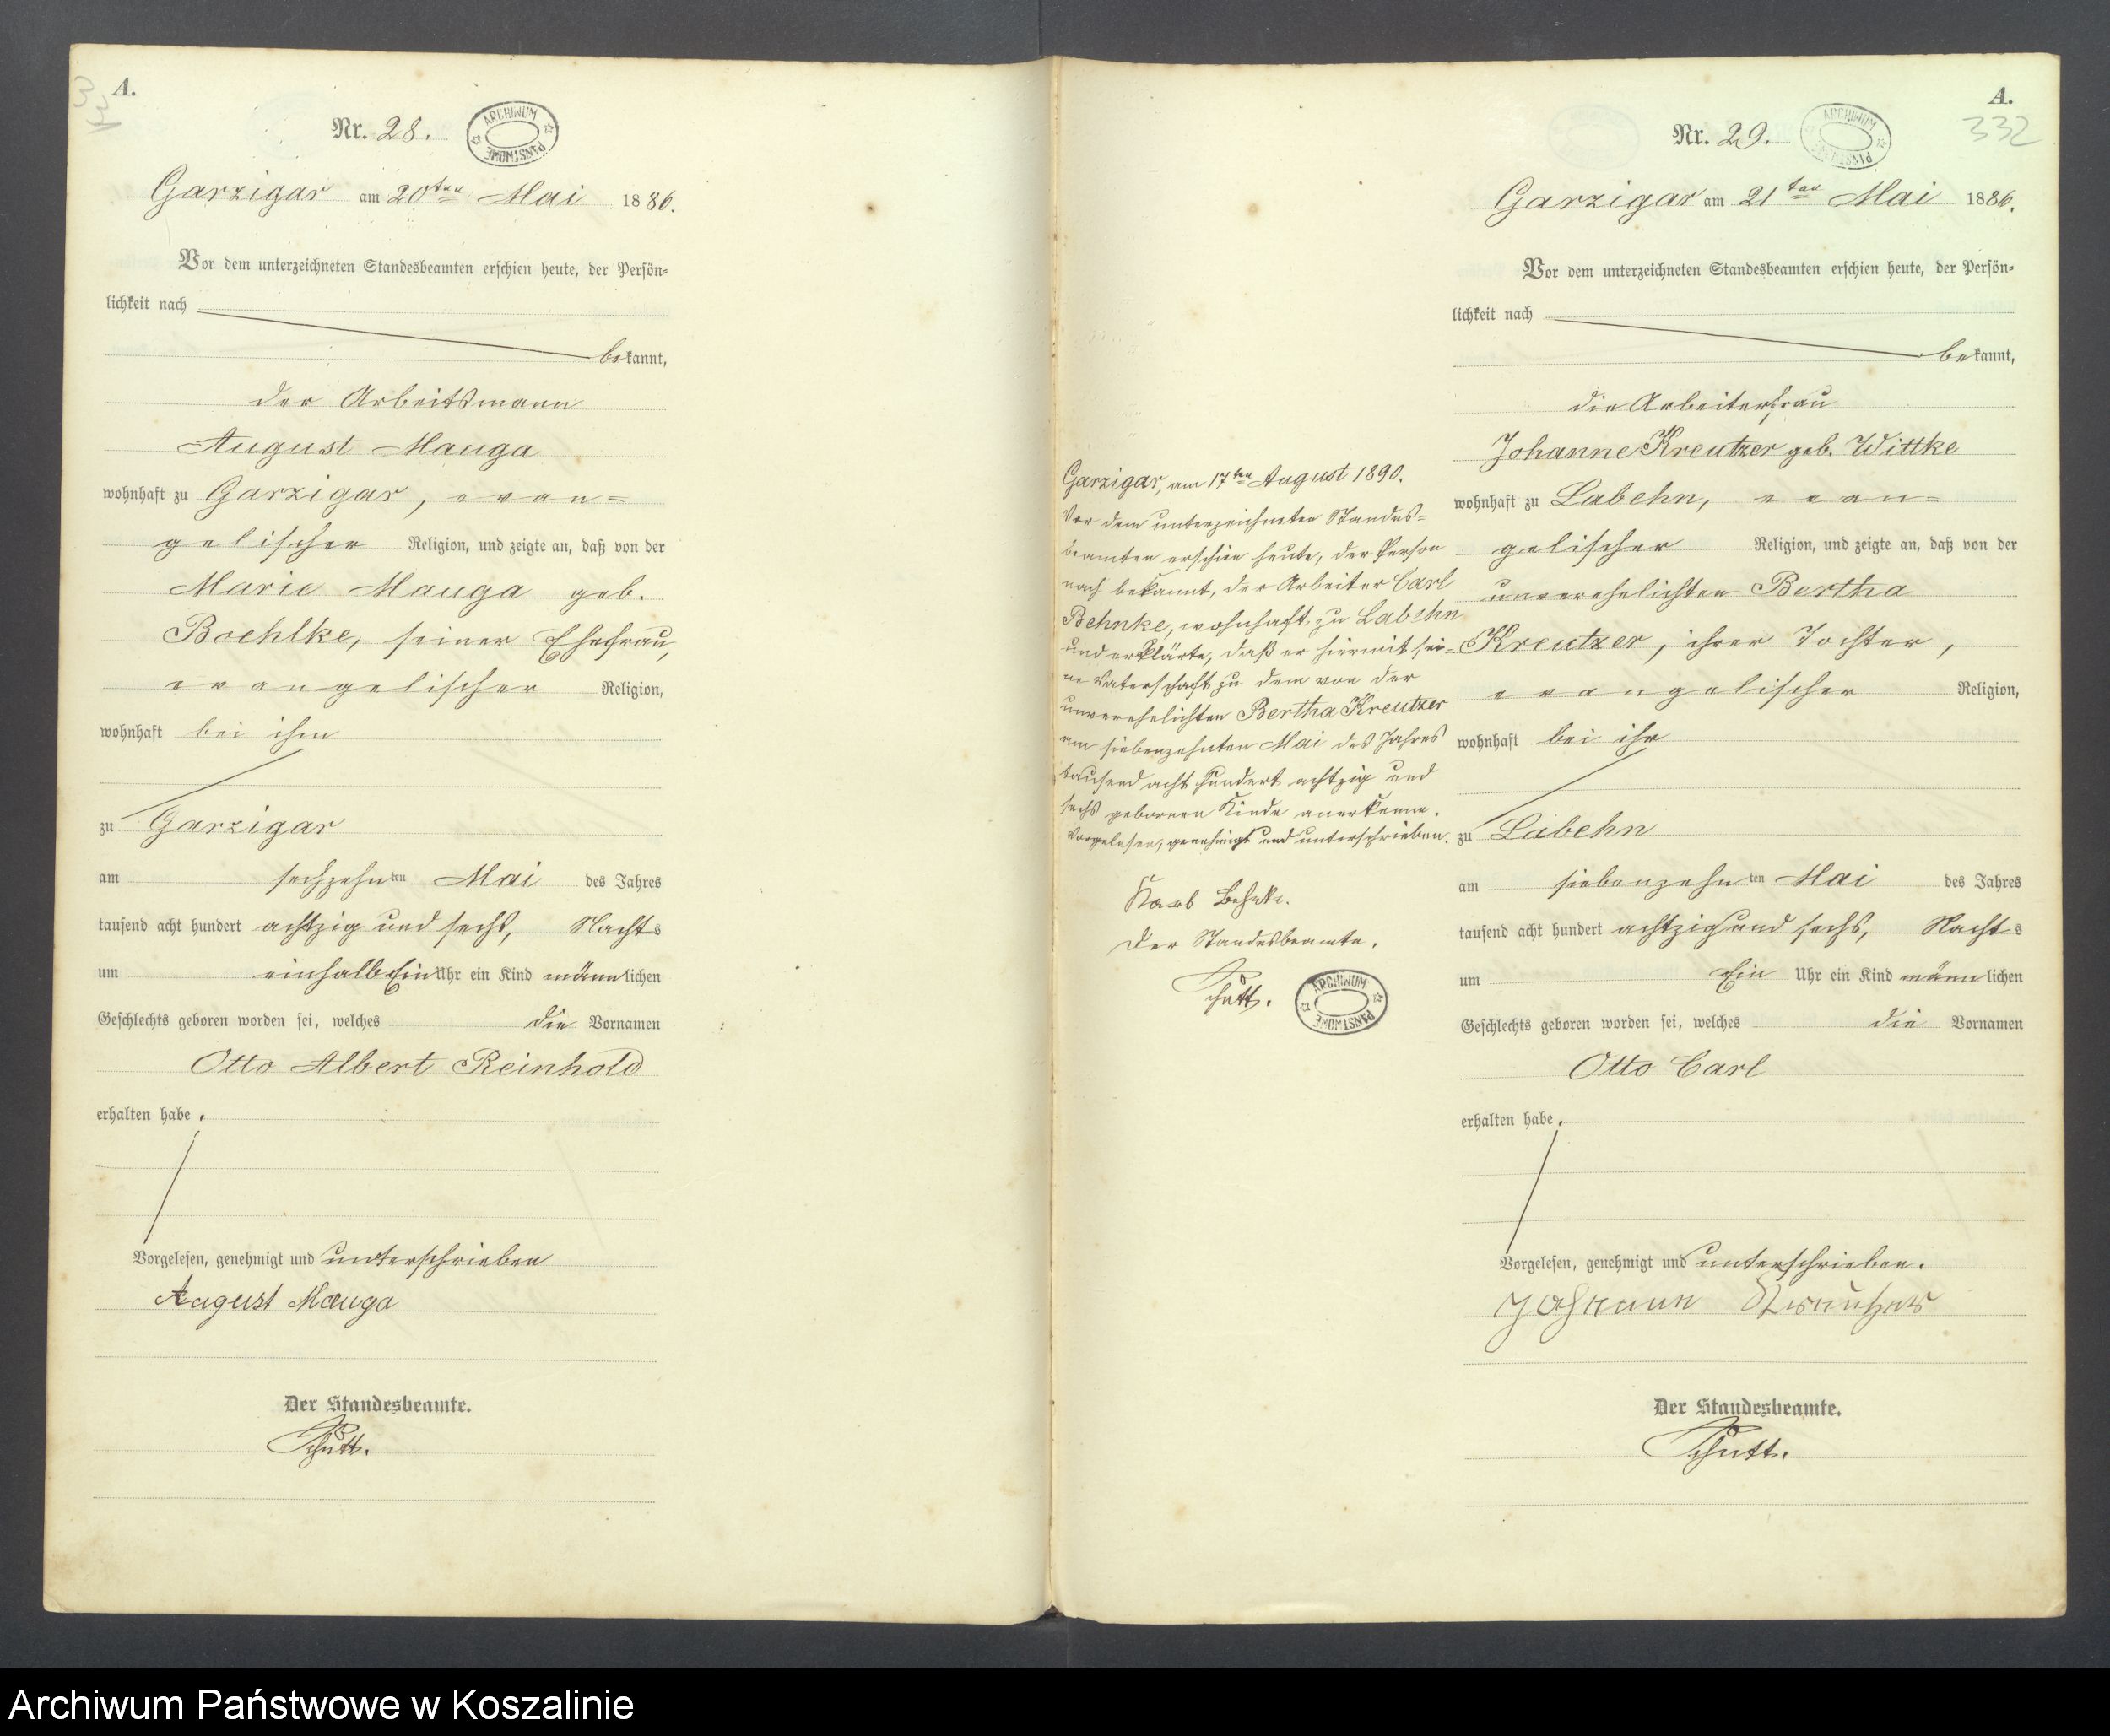 A.
Nr. 28.
ARCHIWUM PAŃSTWOWE
Garzigar am 20ten Mai 1886.
Vor dem unterzeichneten Standesbeamten erschien heute, der Persön-
lichkeit nach
bekannt,
der Arbeitsmann
August Mauga
wohnhaft zu Garzigar, evan-
gelischer Religion, und zeigte an, daß von der
Marie Mauga geb.
Boehlke, seiner Ehefrau,
evangelischer Religion,
wohnhaft bei ihm
zu Garzigar
am sechzehnten Mai des Jahres
tausend acht hundert achtzig und sechs, Nachts
um einhalb Ein Uhr ein Kind männlichen
Geschlechts geboren worden sei, welches die Vornamen
Otto Albert Reinhold
erhalten habe.
Vorgelesen, genehmigt und unterschrieben
August Mauga
Der Standesbeamte.
Schütt.
Garzigar, am 17ten August 1890.
Vor dem unterzeichneten Standes-
beamten erschien heute, der Person
nach bekannt, der Arbeiter Carl
Behnke, wohnhaft zu Labehn
und erklärte, daß er hiermit sei-
ne Vaterschaft zu dem von der
unverehelichten Bertha Kreutzer
am siebenzehnten Mai des Jahres
tausend acht hundert achtzig und
sechs geborenen Kinde anerkenne.
Vorgelesen, genehmigt und unterschrieben.
Karl Behnke.
Der Standesbeamte.
Schütt.
ARCHIWUM PAŃSTWOWE
A.
332
Nr. 29.
ARCHIWUM PAŃSTWOWE
Garzigar am 21ten Mai 1886.
Vor dem unterzeichneten Standesbeamten erschien heute, der Persön-
lichkeit nach
bekannt,
die Arbeiterfrau
Johanne Kreutzer geb. Wittke
wohnhaft zu Labehn, evan-
gelischer Religion, und zeigte an, daß von der
unverehelichten Bertha
Kreutzer, ihrer Tochter,
evangelischer Religion,
wohnhaft bei ihr
zu Labehn
am siebenzehnten Mai des Jahres
tausend acht hundert achtzig und sechs, Nachts
um Ein Uhr ein Kind männlichen
Geschlechts geboren worden sei, welches die Vornamen
Otto Carl
erhalten habe.
Vorgelesen, genehmigt und unterschrieben.
Johanne Kreutzer
Der Standesbeamte.
Schütt.
Archiwum Państwowe w Koszalinie